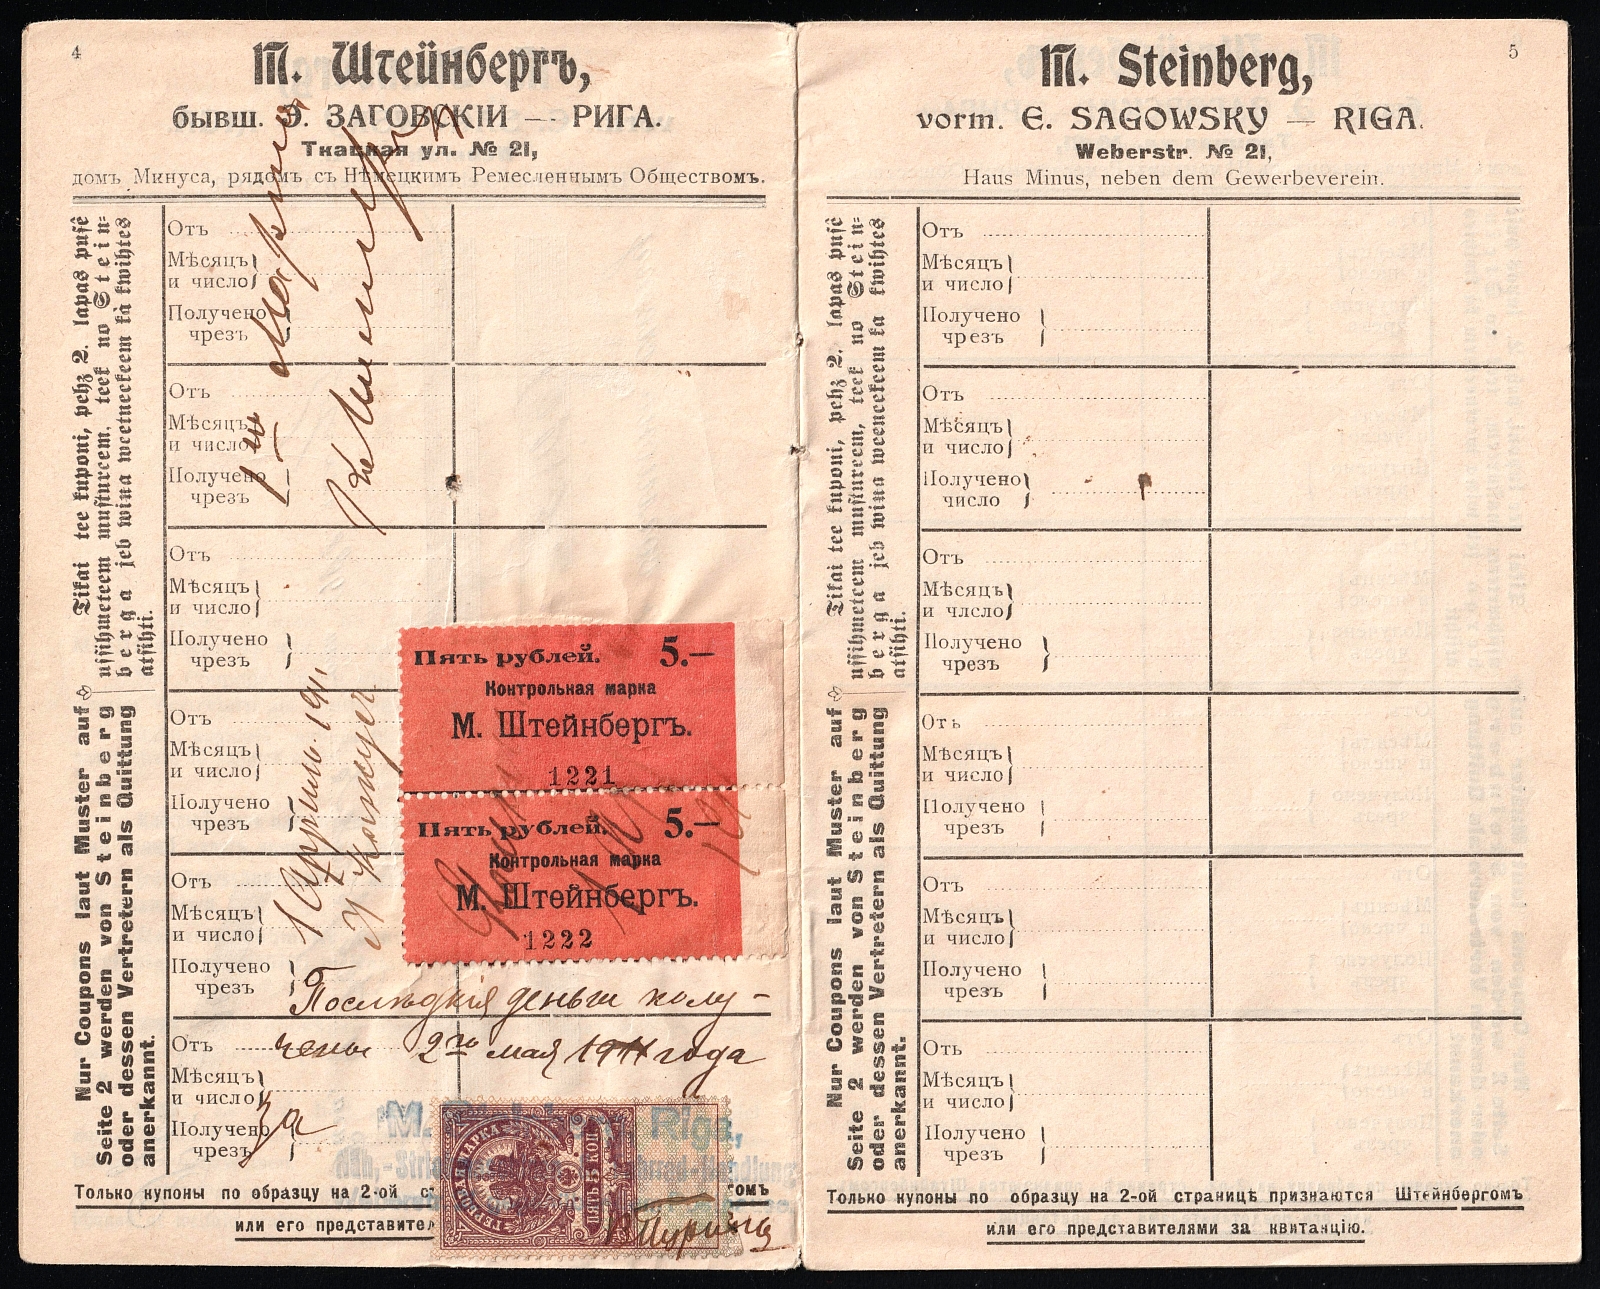 4
М. Штейнбергъ,
бывш. Э. ЗАГОВСКIИ — РИГА.
Ткацкая ул. № 21,
домъ Минуса, рядомъ съ Нѣмецкимъ Ремесленнымъ Обществомъ.
Tikai tee kuponi, pehz 2. lapas pusē
usſihmeteem muſtureem, teek no Stein-
berga jeb wina weetneekeem kà kwihtes
atſihti.
Nur Coupons laut Muster auf
Seite 2 werden von Steinberg
oder dessen Vertretern als Quittung
anerkannt.
Отъ
Мѣсяцъ
и число
Получено
чрезъ
Отъ
Мѣсяцъ
и число
Получено
чрезъ
Отъ
Мѣсяцъ
и число
Получено
чрезъ
Отъ
Мѣсяцъ
и число
Получено
чрезъ
Отъ
Мѣсяцъ
и число
Получено
чрезъ
Отъ
Мѣсяцъ
и число
Получено
чрезъ
1го Марта
1 Април. 1911
Пять рублей. 5.—
Контрольная марка
М. Штейнбергъ.
1221
Пять рублей. 5.—
Контрольная марка
М. Штейнбергъ.
1222
Послѣдкія деньги полу-
чены 2го мая 1911 года
За
Riga,
ГЕРБОВАЯ МАРКА
ПЯТЬ 5 КОП
Только купоны по образцу на 2-ой
или его представител
5
M. Steinberg,
vorm. E. SAGOWSKY — RIGA.
Weberstr. № 21,
Haus Minus, neben dem Gewerbeverein.
Tikai tee kuponi, pehz 2. lapas pusē
usſihmeteem muſtureem, teek no Stein-
berga jeb wina weeneekeem kà kwihtes
atſihti.
Nur Coupons laut Muster auf
Seite 2 werden von Steinberg
oder dessen Vertretern als Quittung
anerkannt.
Отъ
Мѣсяцъ
и число
Получено
чрезъ
Отъ
Мѣсяцъ
и число
Получено
число
Отъ
Мѣсяцъ
и члсло
Получено
чрезъ
Отъ
Мѣсяцъ
и число
Получено
чрезъ
Отъ
Мѣсяцъ
и число
Получено
чрезъ
Отъ
Мѣсяцъ
и число
Получено
чрезъ
Только купоны по образцу на 2-ой страницѣ признаются Штейнбергомъ
или его представителями за квитанцію.